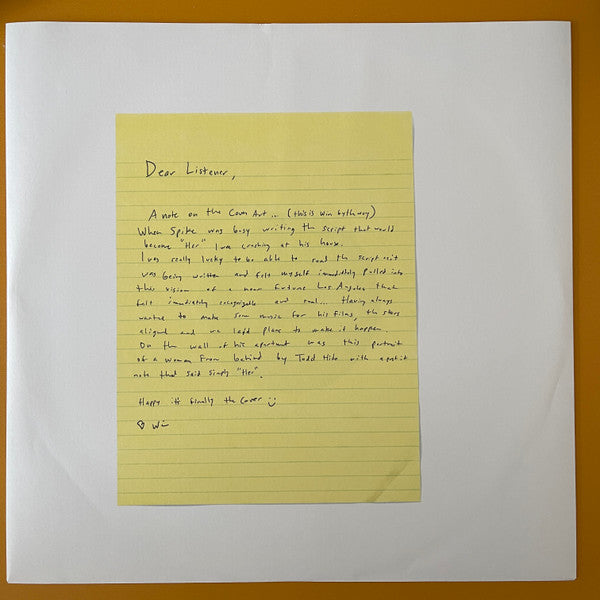 Dear Listener,
A note on the Cover Art .. (this is Win by the way)
When Spike was busy writing the script that would
become "Her" I was crashing at his house.
I was really lucky to be able to read the script as it
was being written and felt myself immediately pulled into
this vision of a near future Los Angeles that
felt immediately recognizable and real... Having always
wanted to make some music for his films, the stars
aligned and we left plans to make it happen.
On the wall of his apartment was this portrait
of a woman from behind by Todd Hido with a post it
note that said simply "Her".
Happy its finally the cover :)
Win